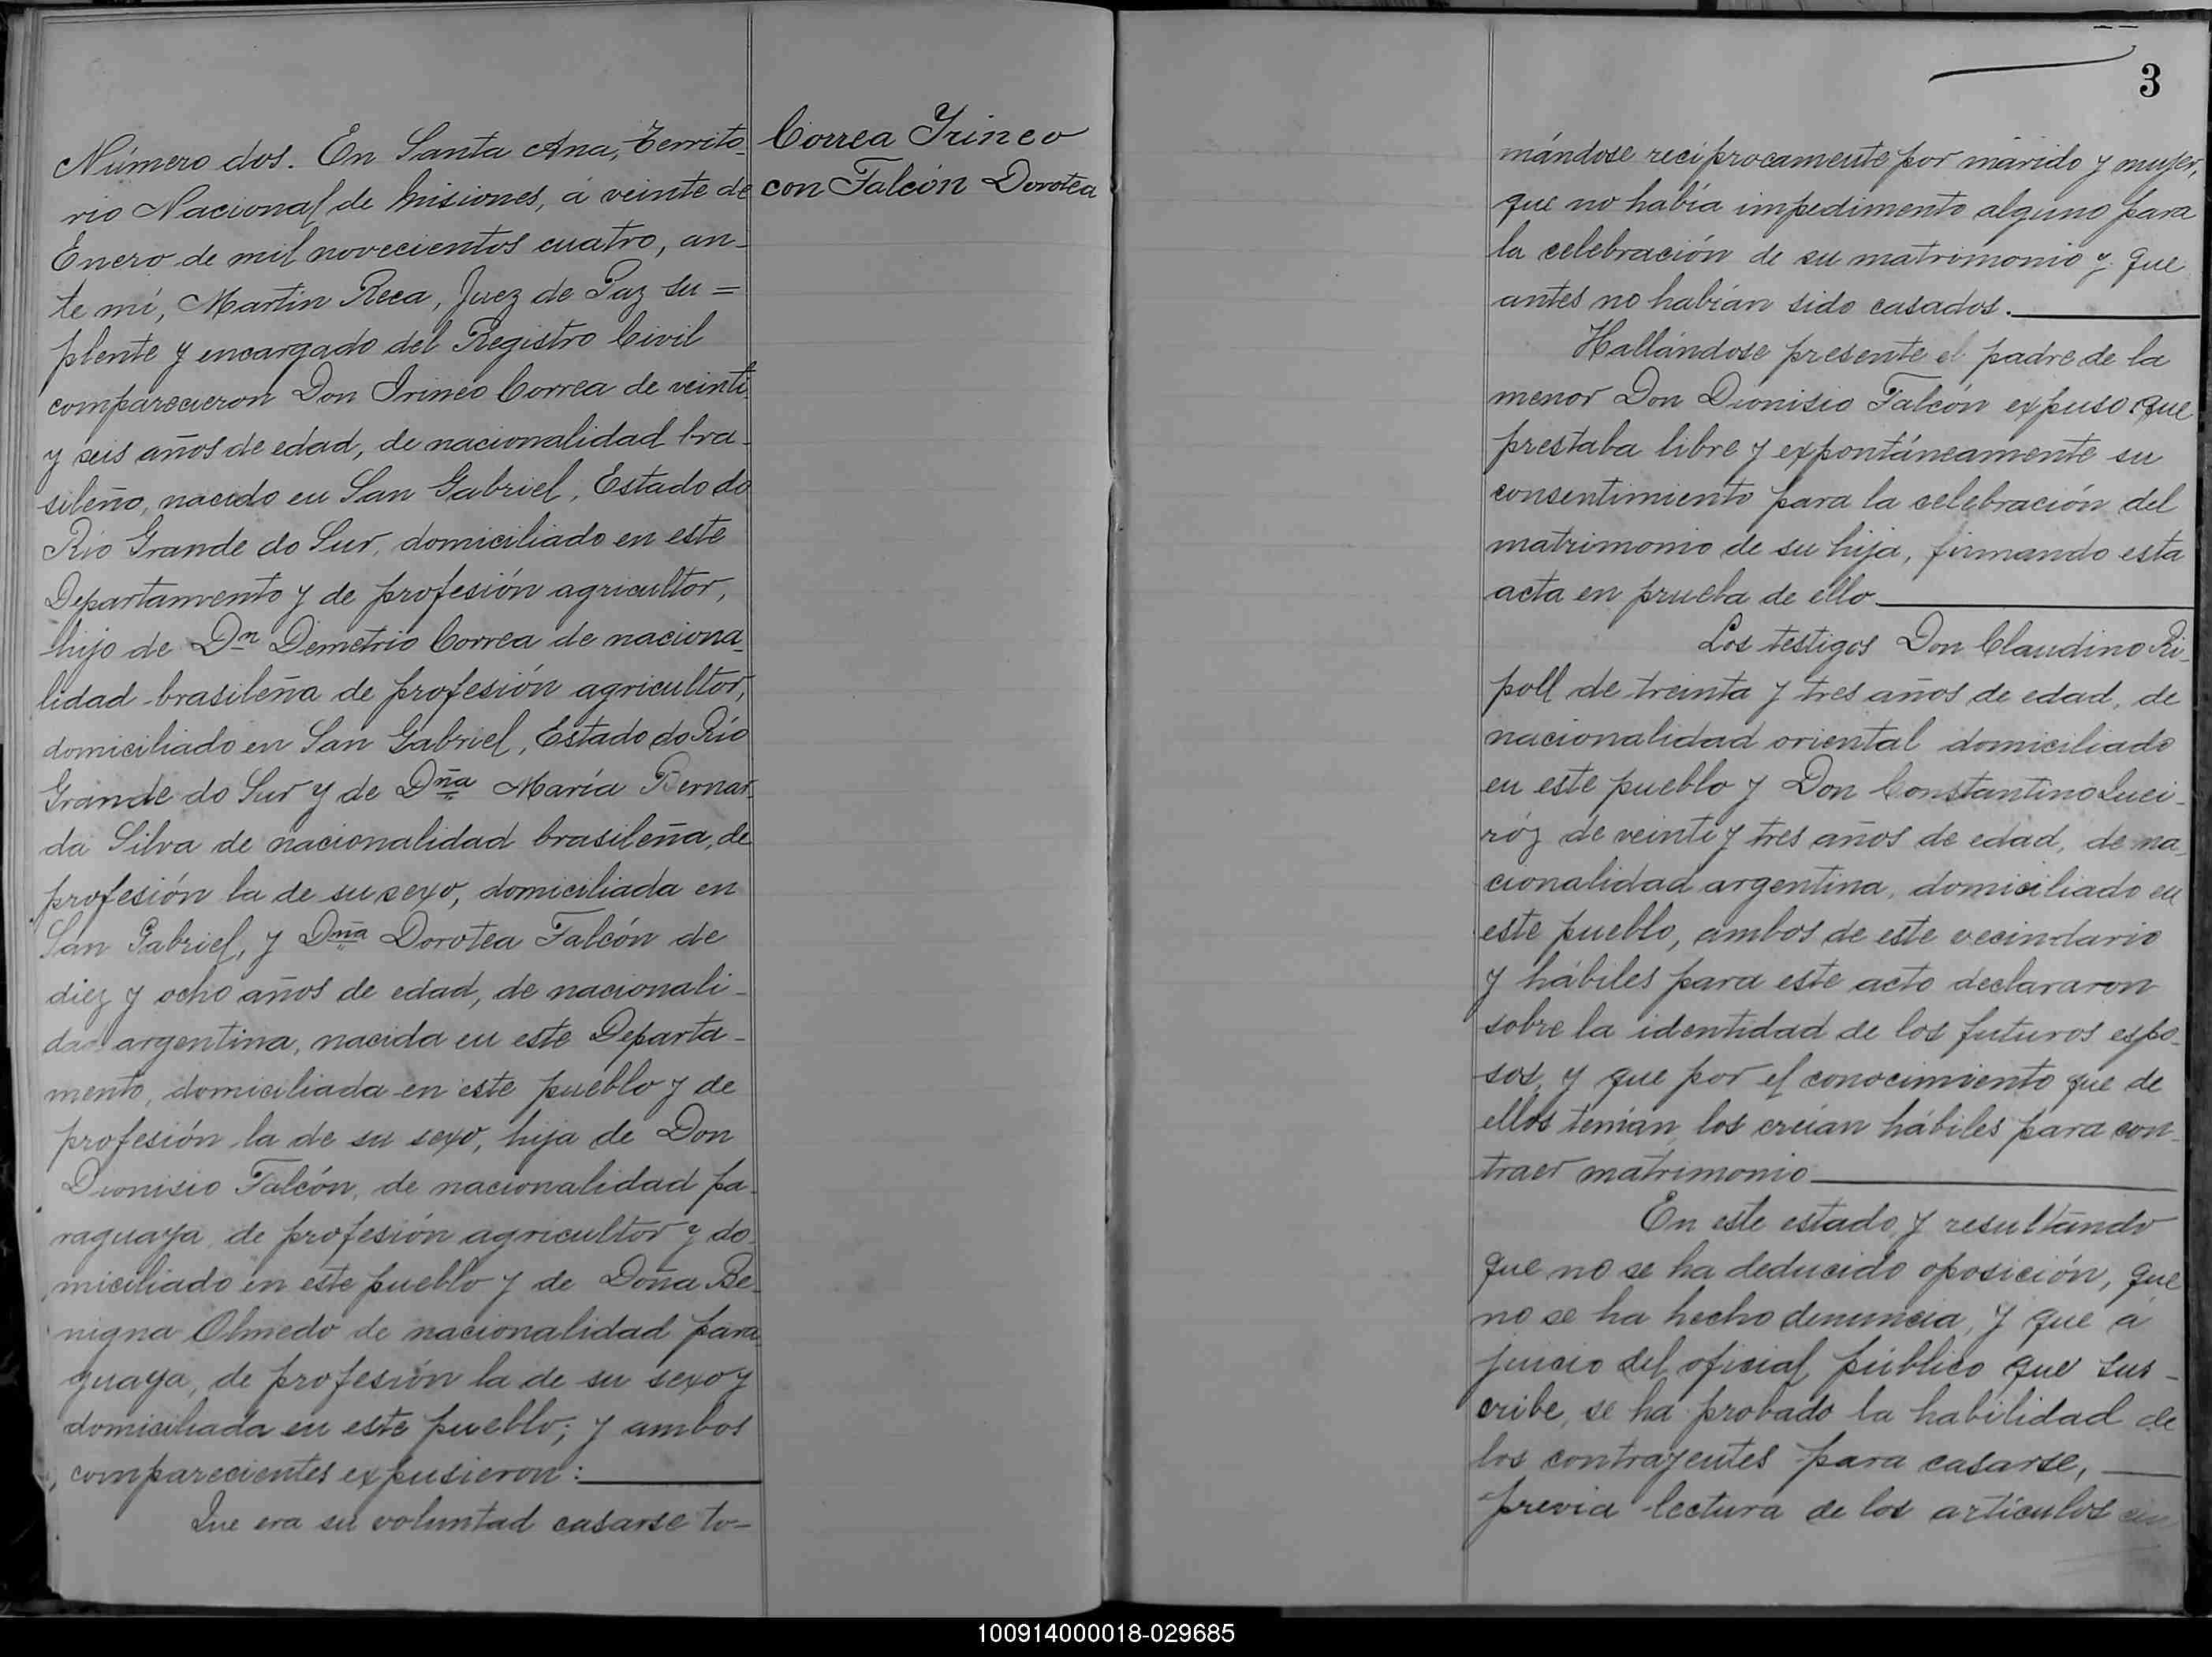 Número dos. En Santa Ana, Territo-
rio Nacional de Misiones, á veinte de
Enero de mil novecientos cuatro, an-
te mí, Martin Reca, Juez de Paz su=
plente y encargado del Registro Civil
comparecieron Don Irineo Correa de veinti
y seis años de edad, de nacionalidad bra-
sileño, nacido en San Gabriel, Estado do
Rio Grande do Sur, domiciliado en este
Departamento y de profesión agricultor,
hijo de Dn Demetrio Correa de naciona-
lidad brasileña de profesión agricultor,
domiciliado en San Gabriel, Estado do Río
Grande do Sur y de Dña María Bernar-
da Silva de nacionalidad brasileña, de
profesión la de su sexo, domiciliada en
San Gabriel, y Dña Dorotea Falcón de
diez y ocho años de edad, de nacionali-
dad argentina, nacida en este Departa-
mento, domiciliada en este pueblo y de
profesión la de su sexo, hija de Don
Dionisio Falcón, de nacionalidad pa-
raguaya de profesión agricultor y do-
miciliado en este pueblo y de Doña Be-
nigna Olmedo de nacionalidad para-
guaya, de profesión la de su sexo y
domiciliada en este pueblo; y ambos
comparecientes expusieron:
Que era su voluntad casarse to-
Correa Irineo
con Falcón Dorotea
3
mándose reciprocamente por marido y mujer,
que no había impedimento alguno para
la celebración de su matrimonio y que
antes no habían sido casados.
Hallándose presente el padre de la
menor Don Dionisio Falcón expuso: que
prestaba libre y expontáneamente su
consentimiento para la celebración del
matrimonio de su hija, firmando esta
acta en prueba de ello
Los testigos Don Claudino Ri-
poll de treinta y tres años de edad, de
nacionalidad oriental domiciliado
en este pueblo y Don Constantino Luci-
róz de veinte y tres años de edad, de na-
cionalidad argentina, domiciliado en
este pueblo, ambos de este vecindario
y hábiles para este acto declararon
sobre la identidad de los futuros espo-
sos, y que por el conocimiento que de
ellos tenían los creían hábiles para con-
traer matrimonio
En este estado y resultando
que no se ha deducido oposición, que
no se ha hecho denuncia, y que á
juicio del oficial público que sus-
cribe, se ha probado la habilidad de
los contrayentes para casarse,
previa lectura de los artículos
100914000018-029685